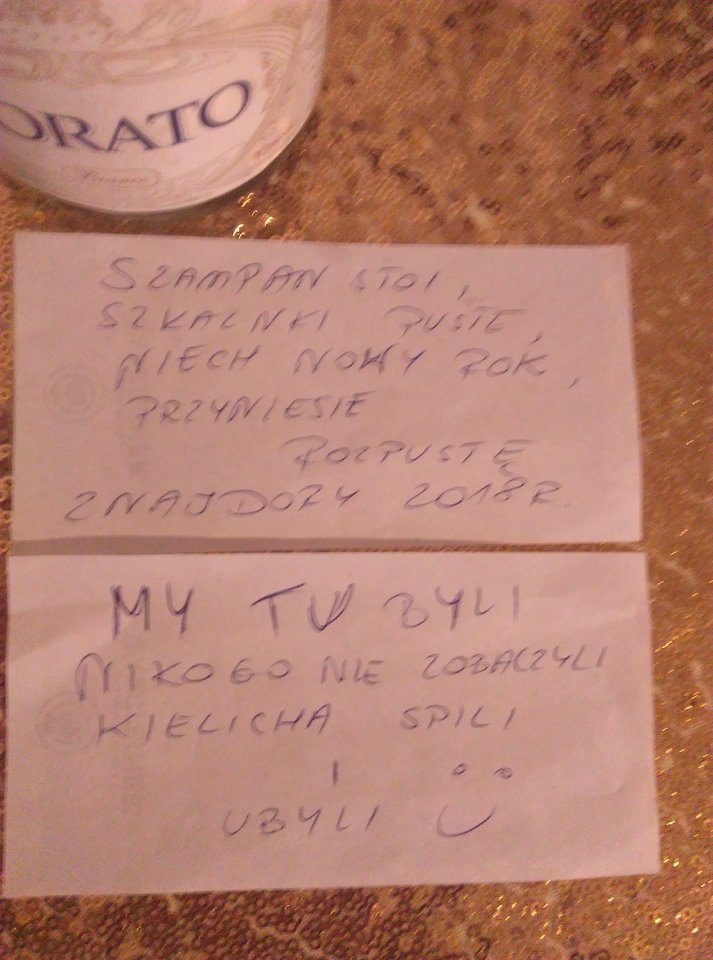 ORATO
SZAMPAN STOI,
SZKALNKI PUSTE,
NIECH NOWY ROK,
PRZYNIESIE
ROZPUSTĘ
ZNAJDORY 2018R.
MY TU BYLI
NIKOGO NIE ZOBACZYLI
KIELICHA SPILI
I
UBYLI